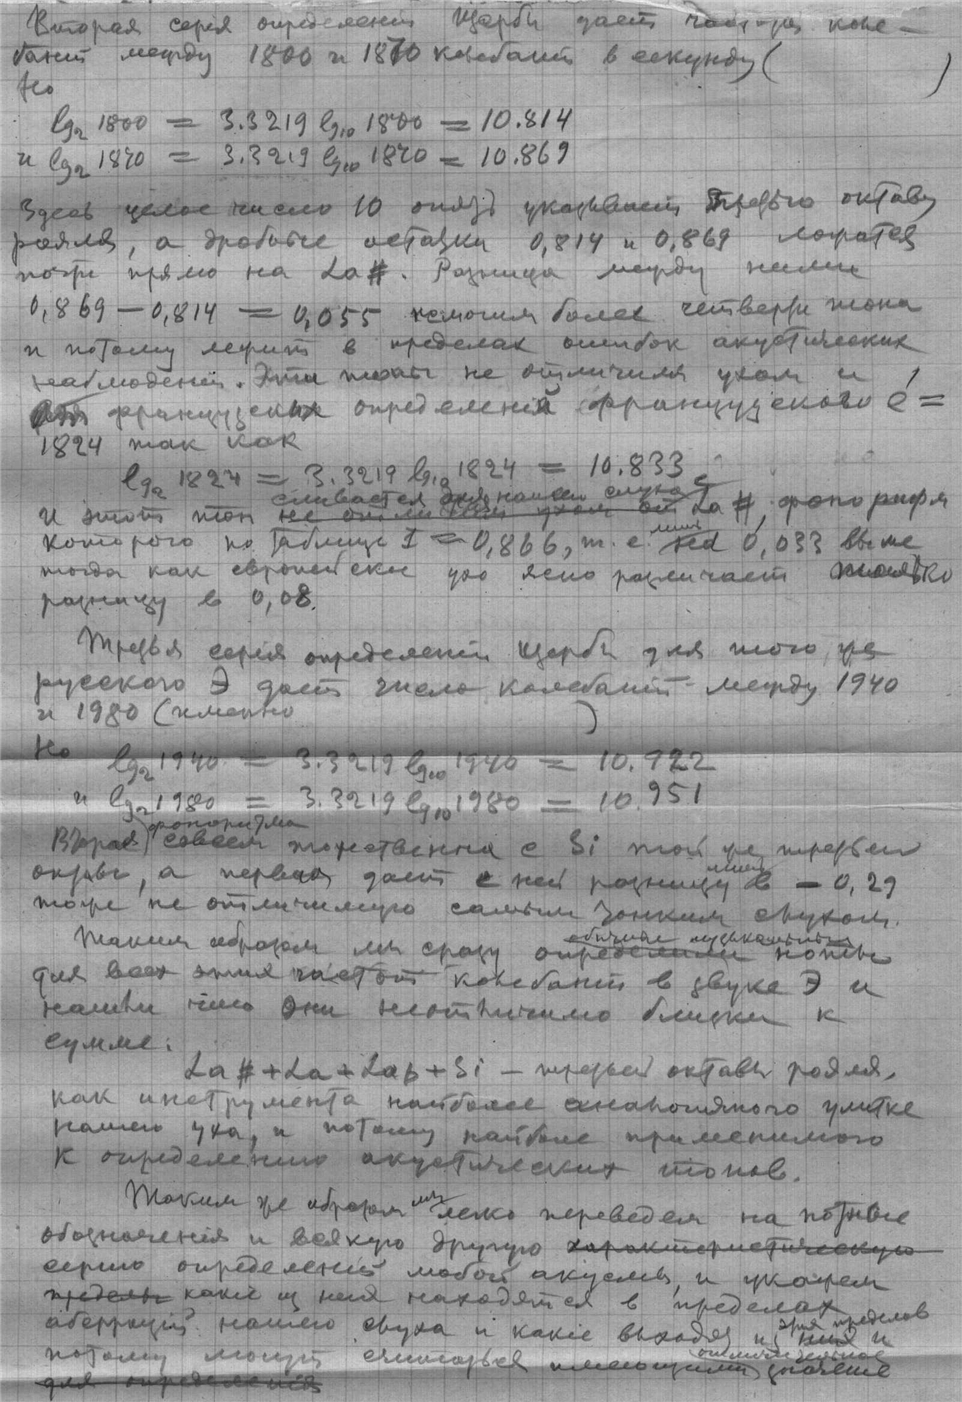 Вторая серія определеній Щербы даетъ частоту коле-
баній между 1800 и 1870 колебаній в секунду (          )
Но
lg₂ 1800 = 3.3219 lg₁₀ 1800 = 10.814
и lg₂ 1870 = 3.3219 lg₁₀ 1870 = 10.869
Здесь целое число 10 опять указывает третью октаву
рояля, а дробные остатки 0,814 и 0,869 ложатся
почти прямо на La#. Разница между ними
0,869 — 0,814 = 0,055 немогим более четверти тона
и потому лежит в пределах ошибок акустических
наблюденій. Эти тоны не отличимы ухом и
французских определеній французского é =
1824 так как
lg₂ 1824 = 3.3219 lg₁₀ 1824 = 10.833
сливается для нашего слуха с
И этот тон не отличим ухом от La#, фонорифм
которого по таблице I = 0,866, т. е. лишь на 0,033 выше
тогда как европейское ухо ясно различает только
разницу в 0,08.
Третья серія определеній Щербы для того же
русского Э даст число колебаній между 1940
и 1980 (именно          )
Но lg₂ 1940 = 3.3219 lg₁₀ 1940 = 10.922
и lg₂ 1980 = 3.3219 lg₁₀ 1980 = 10.951
фоноритма
Вторая совсем тожественна с Si той же третьей
октавы, а первая дает с ней разницу лишь в — 0,29
тоже не отличимую самым тонким слухом.
обычные музыкальные
Таким образом мы сразу определили ноты
для всех этих частот колебаній в звуке Э и
нашли что они неотличимо близки к
сумме:
La# + La + Lab + Si — третьей октавы рояля,
как инструмента наиболее аналогичного улитке
нашего уха, и потому наиболе применимого
к определению акустических тонов.
Таким же образом мы легко переведем на нотные
обозначенія и всякую другую характеристическую
серию определеній любой акусмы, и укажем
пределы какіе из них находятся в пределах
аберрацій нашего слуха и какіе выходят из них этих пределов и
отличительное
потому могут считаться имеющими значение
для определенія